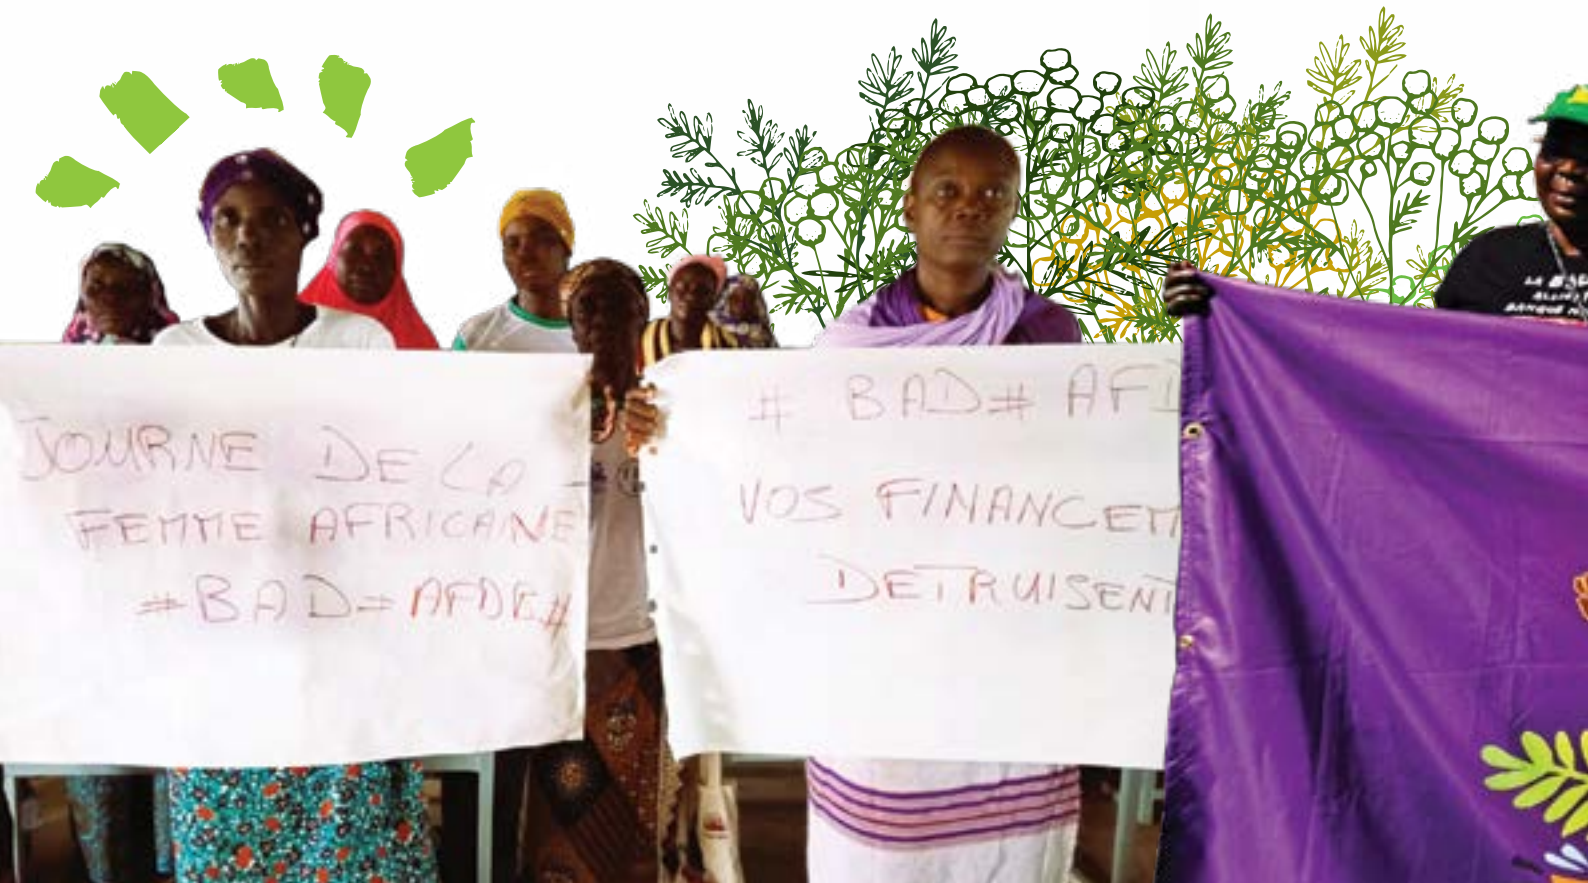 JOURNE DE LA
FEMME AFRICANE
#BAD#AFDB#
# BAD# AFD
VOS FINANCEM
DETRUISENT
LA